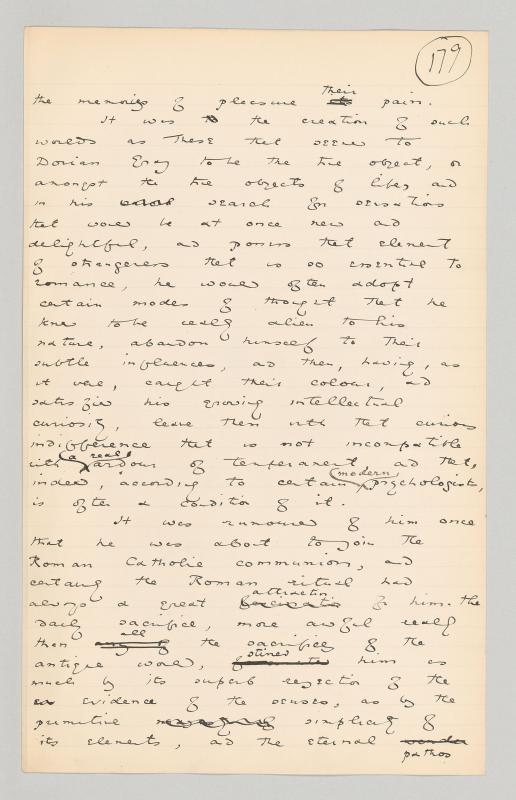 179
the memories of pleasure their pain.
It was the creation of such
worlds as these that seemed to
Dorian Gray to be the true object, or
amongst the true objects of life, and
in his search for sensations
that would be at once new and
delightful, and possess that element
of strangeness that is so essential to
romance, he would often adopt
certain modes of thought that he
knew to be really alien to his
nature, abandon himself to their
subtle influences, and then, having, as
it were, caught their colour, and
satisfied his growing intellectual
curiosity, leave them with that curious
indifference that is not incompatible
with a real ardour of temperament, and that,
indeed, according to certain modern psychologists,
is often a condition of it.
It was rumoured of him once
that he was about to join the
Roman Catholic communion, and
certainly the Roman ritual had
always a great attraction for him. The
Daily sacrifice, more awful really
than all the sacrifices of the
antique world, stirred him as
much by its superb rejection of the
evidence of the senses, as by the
primitive simplicity of
its elements, and the eternal pathos